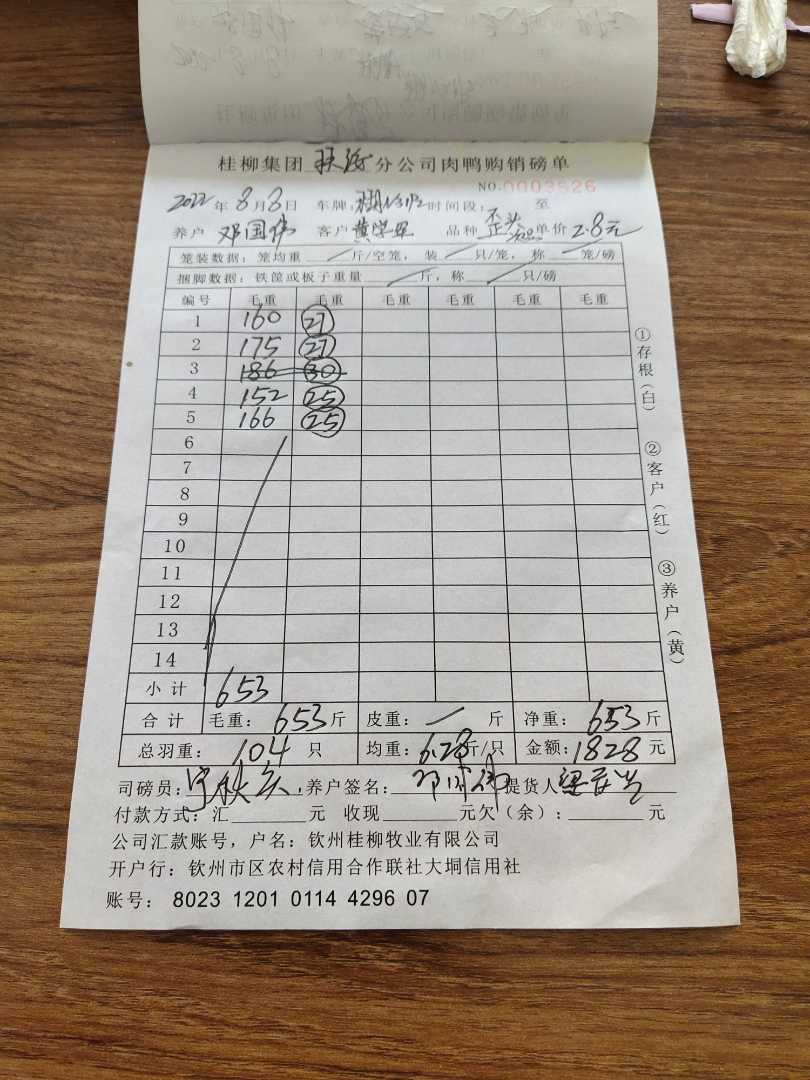 桂柳集团 分公司肉鸭购销磅单
NO.0003526
2022年8月8日 车牌: 时间段: 至
养户 邓国伟 客户 黄学军 品种 歪头 单价 2.8元
笼装数据: 笼均重 / 斤/空笼, 装 / 只/笼, 称 / 笼/磅
捆脚数据: 铁筐或板子重量 / 斤, 称 / 只/磅
编号 毛重 毛重 毛重 毛重 毛重 毛重
1 160 27
2 175 27
3 186 30
4 152 25
5 166 25
6
7
8
9
10
11
12
13
14
小计 653
合计 毛重: 653斤 皮重: / 斤 净重: 653斤
总羽重: 104 只 均重: 6.28斤/只 金额: 1828 元
司磅员: 养户签名: 邓国伟 提货人
付款方式: 汇 元 收现 元欠(余): 元
公司汇款账号, 户名: 钦州桂柳牧业有限公司
开户行: 钦州市区农村信用合作联社大垌信用社
账号: 8023 1201 0114 4296 07
①存根(白)
②客户(红)
③养户(黄)